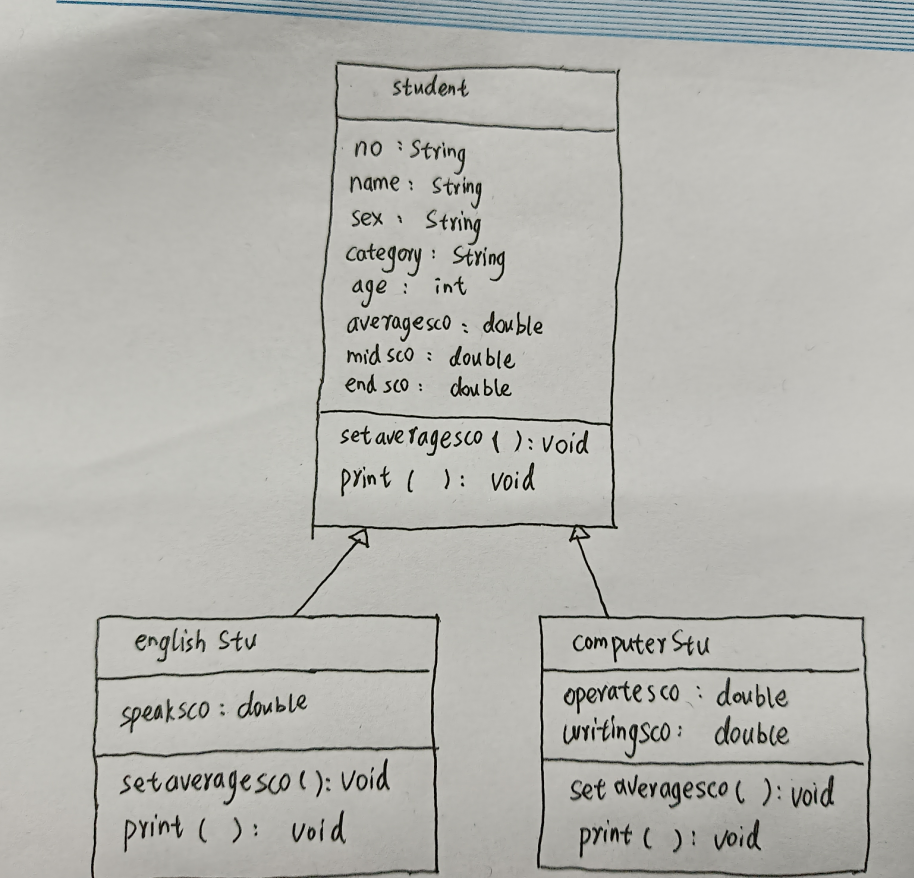 student
no : String
name : String
sex : String
category : String
age : int
averagesco : double
midsco : double
endsco : double
setaveragesco ( ) : void
print ( ) : void
english Stu
speaksco : double
setaveragesco ( ) : void
print ( ) : void
computerStu
operatesco : double
writingsco : double
setaveragesco ( ) : void
print ( ) : void